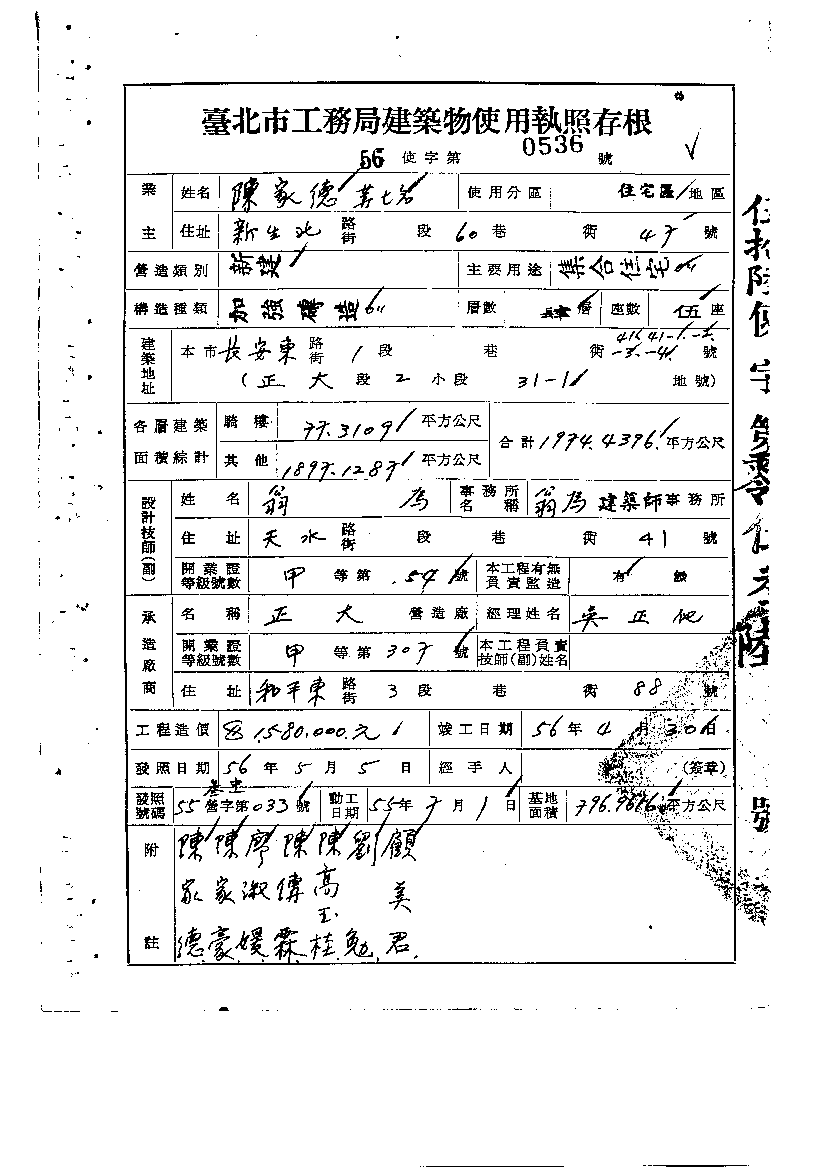 臺北市工務局建築物使用執照存根
56 使字第 0536 號
業主 姓名 陳家德等七名 使用分區 住宅區 地區
住址 新生北 路街 段 60 巷 街 號
營造類別 新建 主要用途 集合住宅
構造種類 加強磚造 層數 肆層 座數 伍座
建築地址 本市長安東 路街 1 段 巷 街 41, 41-1.-2. -3.-4 號
(正大段 2 小段 31-1 地號)
各層建築面積綜計 騎樓 平方公尺 合計 1974.4396 平方公尺
其他 平方公尺
設計技師(副) 姓名 翁為 事務所名稱 翁為建築師事務所
住址 天水 路街 段 巷 街 41 號
開業證等級號數 甲 等第 號 本工程有無負責監造 有
承造廠商 名稱 正大 營造廠 經理姓名 吳正
開業證等級號數 甲 等第 號 本工程負責技師(副)姓名
住址 和平東 路街 3 段 巷 街 88 號
工程造價 1,580,000.元 竣工日期 56 年 4 月 30 日
發照日期 56 年 5 月 5 日 經手人 (簽章)
發照號碼 55 營字第 033 號 動工日期 55 年 月 1 日 基地面積 796.9616 平方公尺
附註 陳家德 陳家豪 廖淑媛 陳傳霖 陳高玉桂 劉勉 顧美君
伍拾陸使字第零伍叁陸號